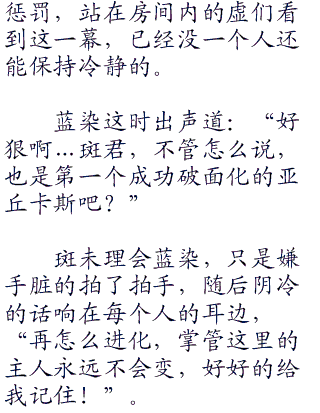 惩罚，站在房间内的虚们看
到这一幕，已经没一个人还
能保持冷静的。
蓝染这时出声道：“好
狠啊...斑君，不管怎么说，
也是第一个成功破面化的亚
丘卡斯吧？”
斑未理会蓝染，只是嫌
手脏的拍了拍手，随后阴冷
的话响在每个人的耳边，
“再怎么进化，掌管这里的
主人永远不会变，好好的给
我记住！”。